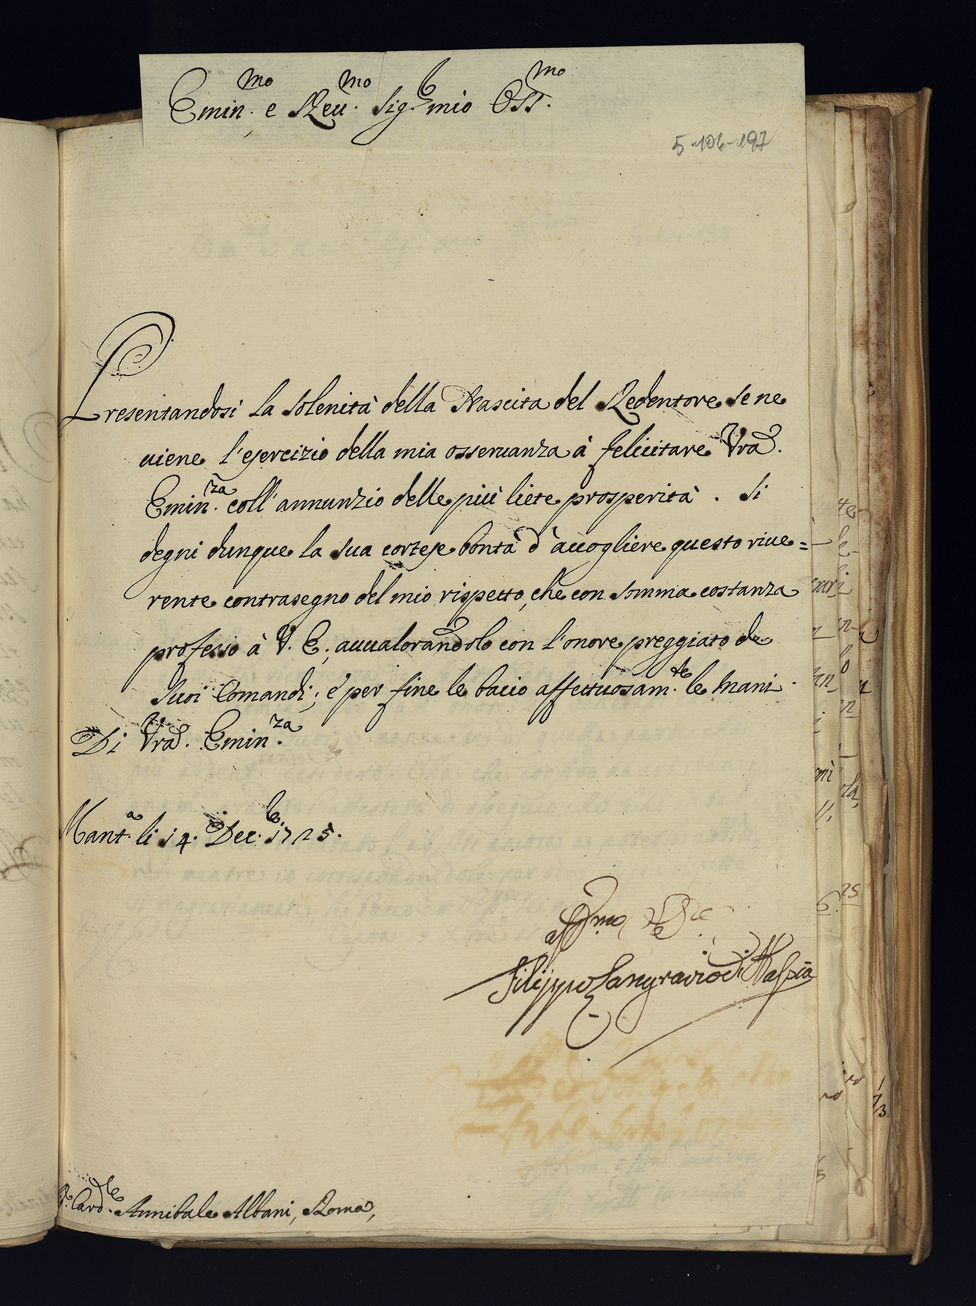 Emin.mo e Reu.mo Sig.r mio Oss.mo
5-106-197
Presentandosi la solenità della Nascita del Redentore se ne
uiene l'esercizio della mia osseruanza à felicitare Vra.
Emin.za coll'annunzio delle più liete prosperità. Si
degni dunque la sua cortese bontà d'accogliere questo riue=
rente contrasegno del mio rispetto, che con somma costanza
professo à V. E., auualorandolo con l'onore preggiato de
Suoi Comandi; e per fine le bacio affettuosam.te le mani.
Di Vra. Emin.za
Mant.a li 14. Dec.bre 1725.
aff.mo
Filippo Langravio di Hassia
Card.le Annibale Albani, Roma,